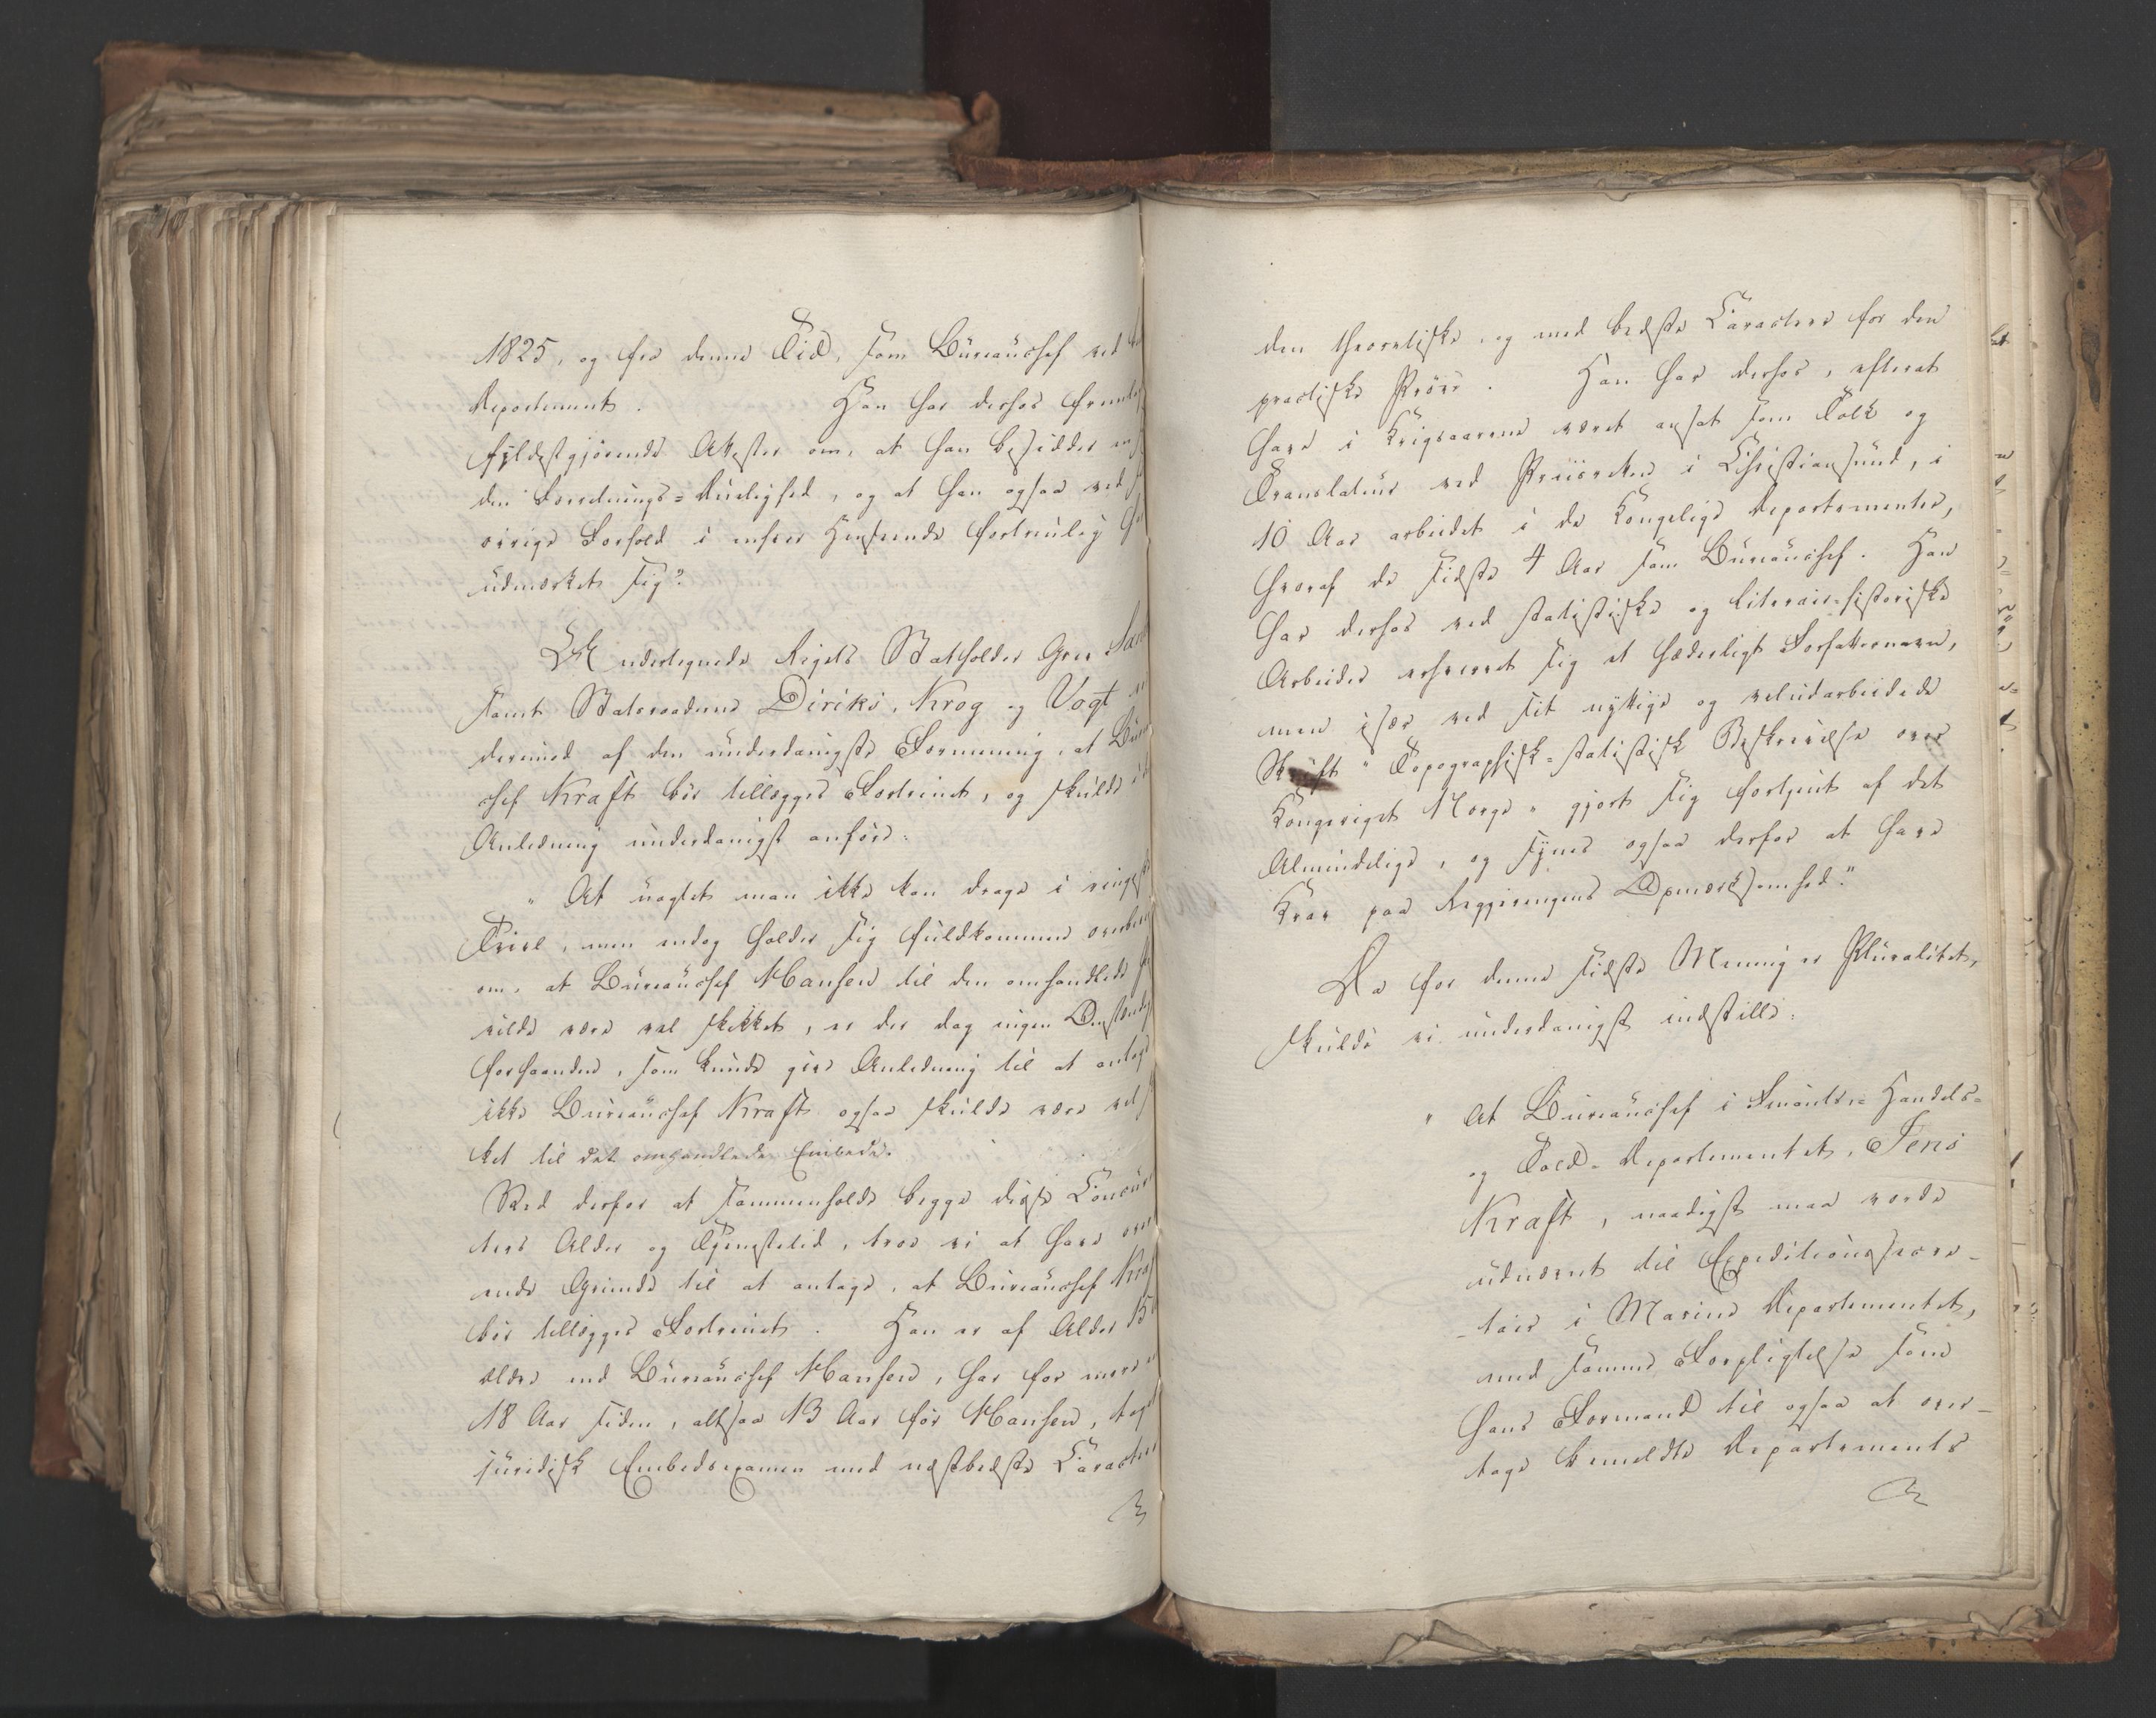 1825, og fra denne Tid, som Büreauchef ved
Departement. Han har derhos fremlagt
fyldestgjørende Attester om, at han besidder
den Forretnings-Duelighed, og at han ogsaa ved
øvrige Forhold i enhver Henseende fortrinlig har
udmærket sig."
Undertegnede Rigets Statholder Grev
samt Statsraaderne Diriks, Krog og Vogt
derimod af den underdanigste Formening, at
chef Kraft bør tillægges Fortrinet, og skulde
Anledning underdanigst anføre:
" At uagtet man ikke kan drage i ringeste
Tvivl, men endog holder sig fuldkommen
om, at Büreauchef Hansen til den omhandlede
vilde være vel skikket, er der dog ingen
forhaanden, som kunde give Anledning til at antage
ikke Büreauchef Kraft ogsaa skulde være vel
ket til det omhandlede Embede.
Ved derfor at sammenholde begge disse
ters Alder og Tjenestetid, troe vi at have
ende Grunde til at antage, at Büreauchef Kraft
bør tillægges Fortrinet. Han er af Alder 15
ældre end Büreauchef Hansen, har for mere
18 Aar siden, altsaa 13 Aar før Hansen, taget
juridisk Embedsexamen med næstbedste Caracter
den theoretiske, og med bedste Caracter for den
practiske Prøve. Han har derhos, efterat
have i Krigsaarene været ansat som Tolk og
Translateur ved Priisretten i Christiansund, i
10 Aar arbeidet i de Kongelige Departementer,
hvoraf de sidste 4 Aar som Büreauchef. Han
har derhos ved statistiske og literair-historiske
Arbeider erhvervet sig et hæderligt Forfatternavn,
men især ved sit nyttige og veludarbeidede
Skrift "Topographisk-statistisk Beskrivelse over
Kongeriget Norge" gjort sig fortjent af det
Almindelige, og synes ogsaa derfor at have
Krav paa Regjeringens Opmærksomhed."
Da for denne sidste Mening er Pluralitet,
skulde vi underdanigst indstille:
" At Büreauchef i Finants- Handels-
og Told-Departementet, Jens
Kraft, naadigst maa vorde
udnævnt til Expeditionssecre-
-tair i Marine Departementet,
med samme Forpligtelse som
hans Formand til ogsaa at over-
tage bemeldte Departements